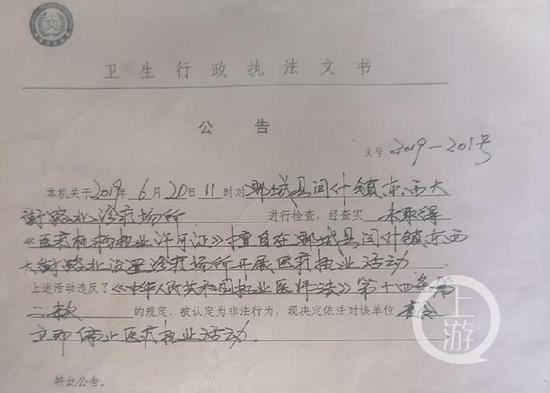 卫生行政执法文书
公告
文号 2019-201号
本机关于2019年6月20日11时对郸城县闫什镇东西大
街路北诊疗场所 进行检查，经查实 未取得
《医疗机构执业许可证》擅自在郸城县闫什镇东西
大街路北设置诊疗场所开展医疗执业活动
上述活动违反了《中华人民共和国执业医师法》第十四条第
二款 的规定，被认定为非法行为，现决定依法对该单位 责令
立即停止医疗执业活动.
特此公告。
上游